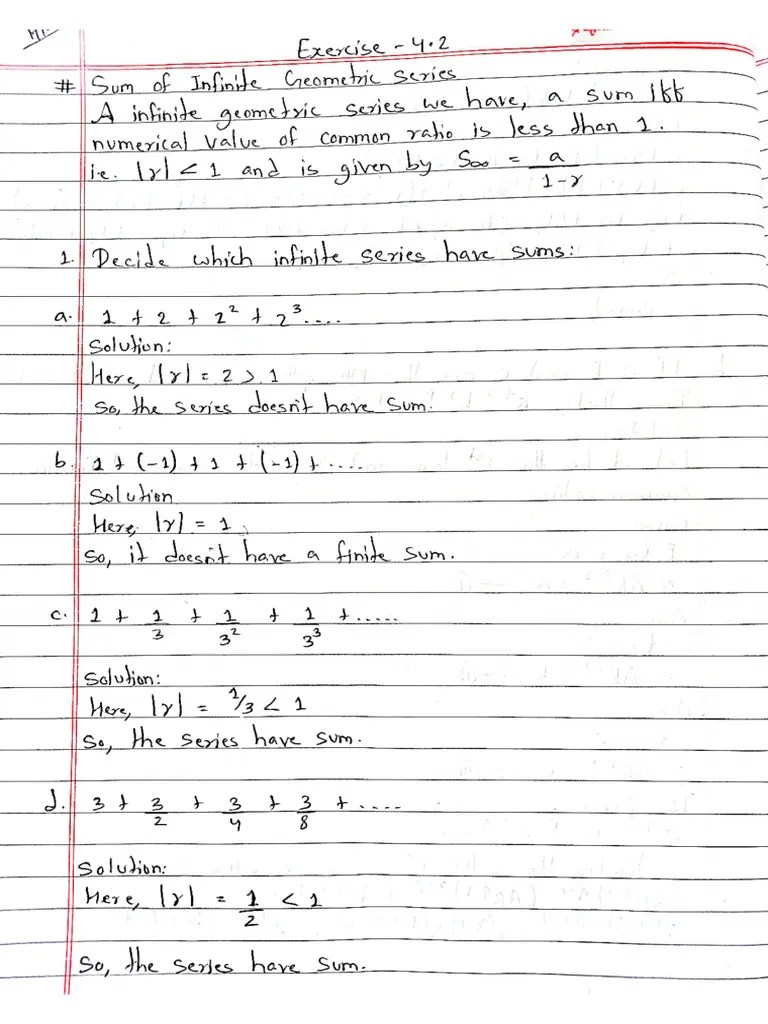 Exercise - 4.2
# Sum of Infinite Geometric series
A infinite geometric series we have, a sum iff
numerical value of common ratio is less than 1.
i.e. |r| < 1 and is given by S∞ = a/(1-r)
1. Decide which infinite series have sums:
a. 1 + 2 + 2² + 2³....
Solution:
Here, |r| = 2 > 1
So, the series doesn't have sum.
b. 1 + (-1) + 1 + (-1) + ....
Solution
Here, |r| = 1
So, it doesn't have a finite sum.
c. 1 + 1/3 + 1/3² + 1/3³ + .....
Solution:
Here, |r| = 1/3 < 1
So, the series have sum.
d. 3 + 3/2 + 3/4 + 3/8 + ....
Solution:
Here, |r| = 1/2 < 1
So, the series have sum.